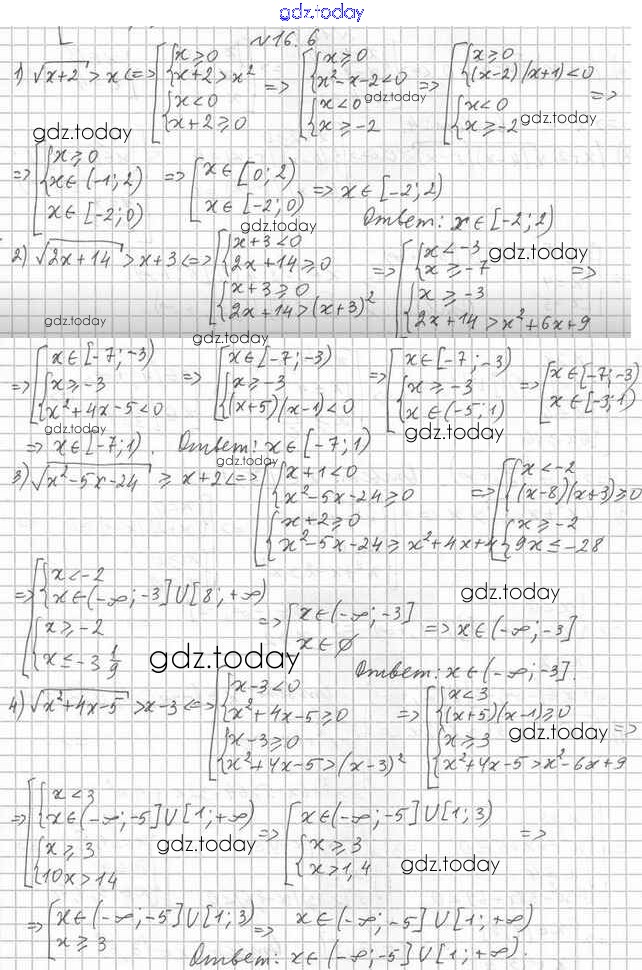 gdz.today
№16.6
1) √(x+2) > x <=> [ { x ≥ 0 { x+2 > x² { x < 0 { x+2 ≥ 0 => [ { x ≥ 0 { x²-x-2<0 { x<0 { x ≥ -2 => [ { x ≥ 0 { (x-2)(x+1)<0 { x<0 { x ≥ -2 =>
gdz.today gdz.today gdz.today
=> [ { x ≥ 0 { x∈(-1; 2) x∈[-2; 0) => [ x∈[0; 2) x∈[-2; 0) => x∈[-2; 2)
gdz.today
Ответ: x∈[-2; 2)
2) √(2x+14) > x+3 <=> [ { x+3<0 { 2x+14 ≥ 0 { x+3 ≥ 0 { 2x+14>(x+3)² => [ { x<-3 { x ≥ -7 { x ≥ -3 { 2x+14 > x²+6x+9 =>
gdz.today
gdz.today gdz.today
=> [ x∈[-7; -3) { x ≥ -3 { x²+4x-5<0 => [ x∈[-7; -3) { x ≥ -3 { (x+5)(x-1)<0 => [ x∈[-7; -3) { x ≥ -3 { x∈(-5; 1) => [ x∈[-7; -3) x∈[-3; 1)
gdz.today
=> x∈[-7; 1). Ответ: x∈[-7; 1)
gdz.today
3) √(x²-5x-24) ≥ x+2 <=> [ { x+1<0 { x²-5x-24 ≥ 0 { x+2 ≥ 0 { x²-5x-24 ≥ x²+4x+4 => [ { x<-2 { (x-8)(x+3) ≥ 0 { x ≥ -2 { 9x ≤ -28
=> [ { x<-2 { x∈(-∞; -3]∪[8; +∞) { x ≥ -2 { x ≤ -3 1/9 => [ x∈(-∞; -3] x∈∅ => x∈(-∞; -3]
gdz.today
gdz.today
Ответ: x∈(-∞; -3].
4) √(x²+4x-5) > x-3 <=> [ { x-3<0 { x²+4x-5 ≥ 0 { x-3 ≥ 0 { x²+4x-5>(x-3)² => [ { x<3 { (x+5)(x-1) ≥ 0 { x ≥ 3 { x²+4x-5>x²-6x+9 =>
gdz.today
=> [ { x<3 { x∈(-∞; -5]∪[1; +∞) { x ≥ 3 { 10x>14 => [ x∈(-∞; -5]∪[1; 3) { x ≥ 3 { x>1,4 =>
gdz.today gdz.today
=> [ x∈(-∞; -5]∪[1; 3) x ≥ 3 => x∈(-∞; -5]∪[1; +∞)
Ответ: x∈(-∞; -5]∪[1; +∞).